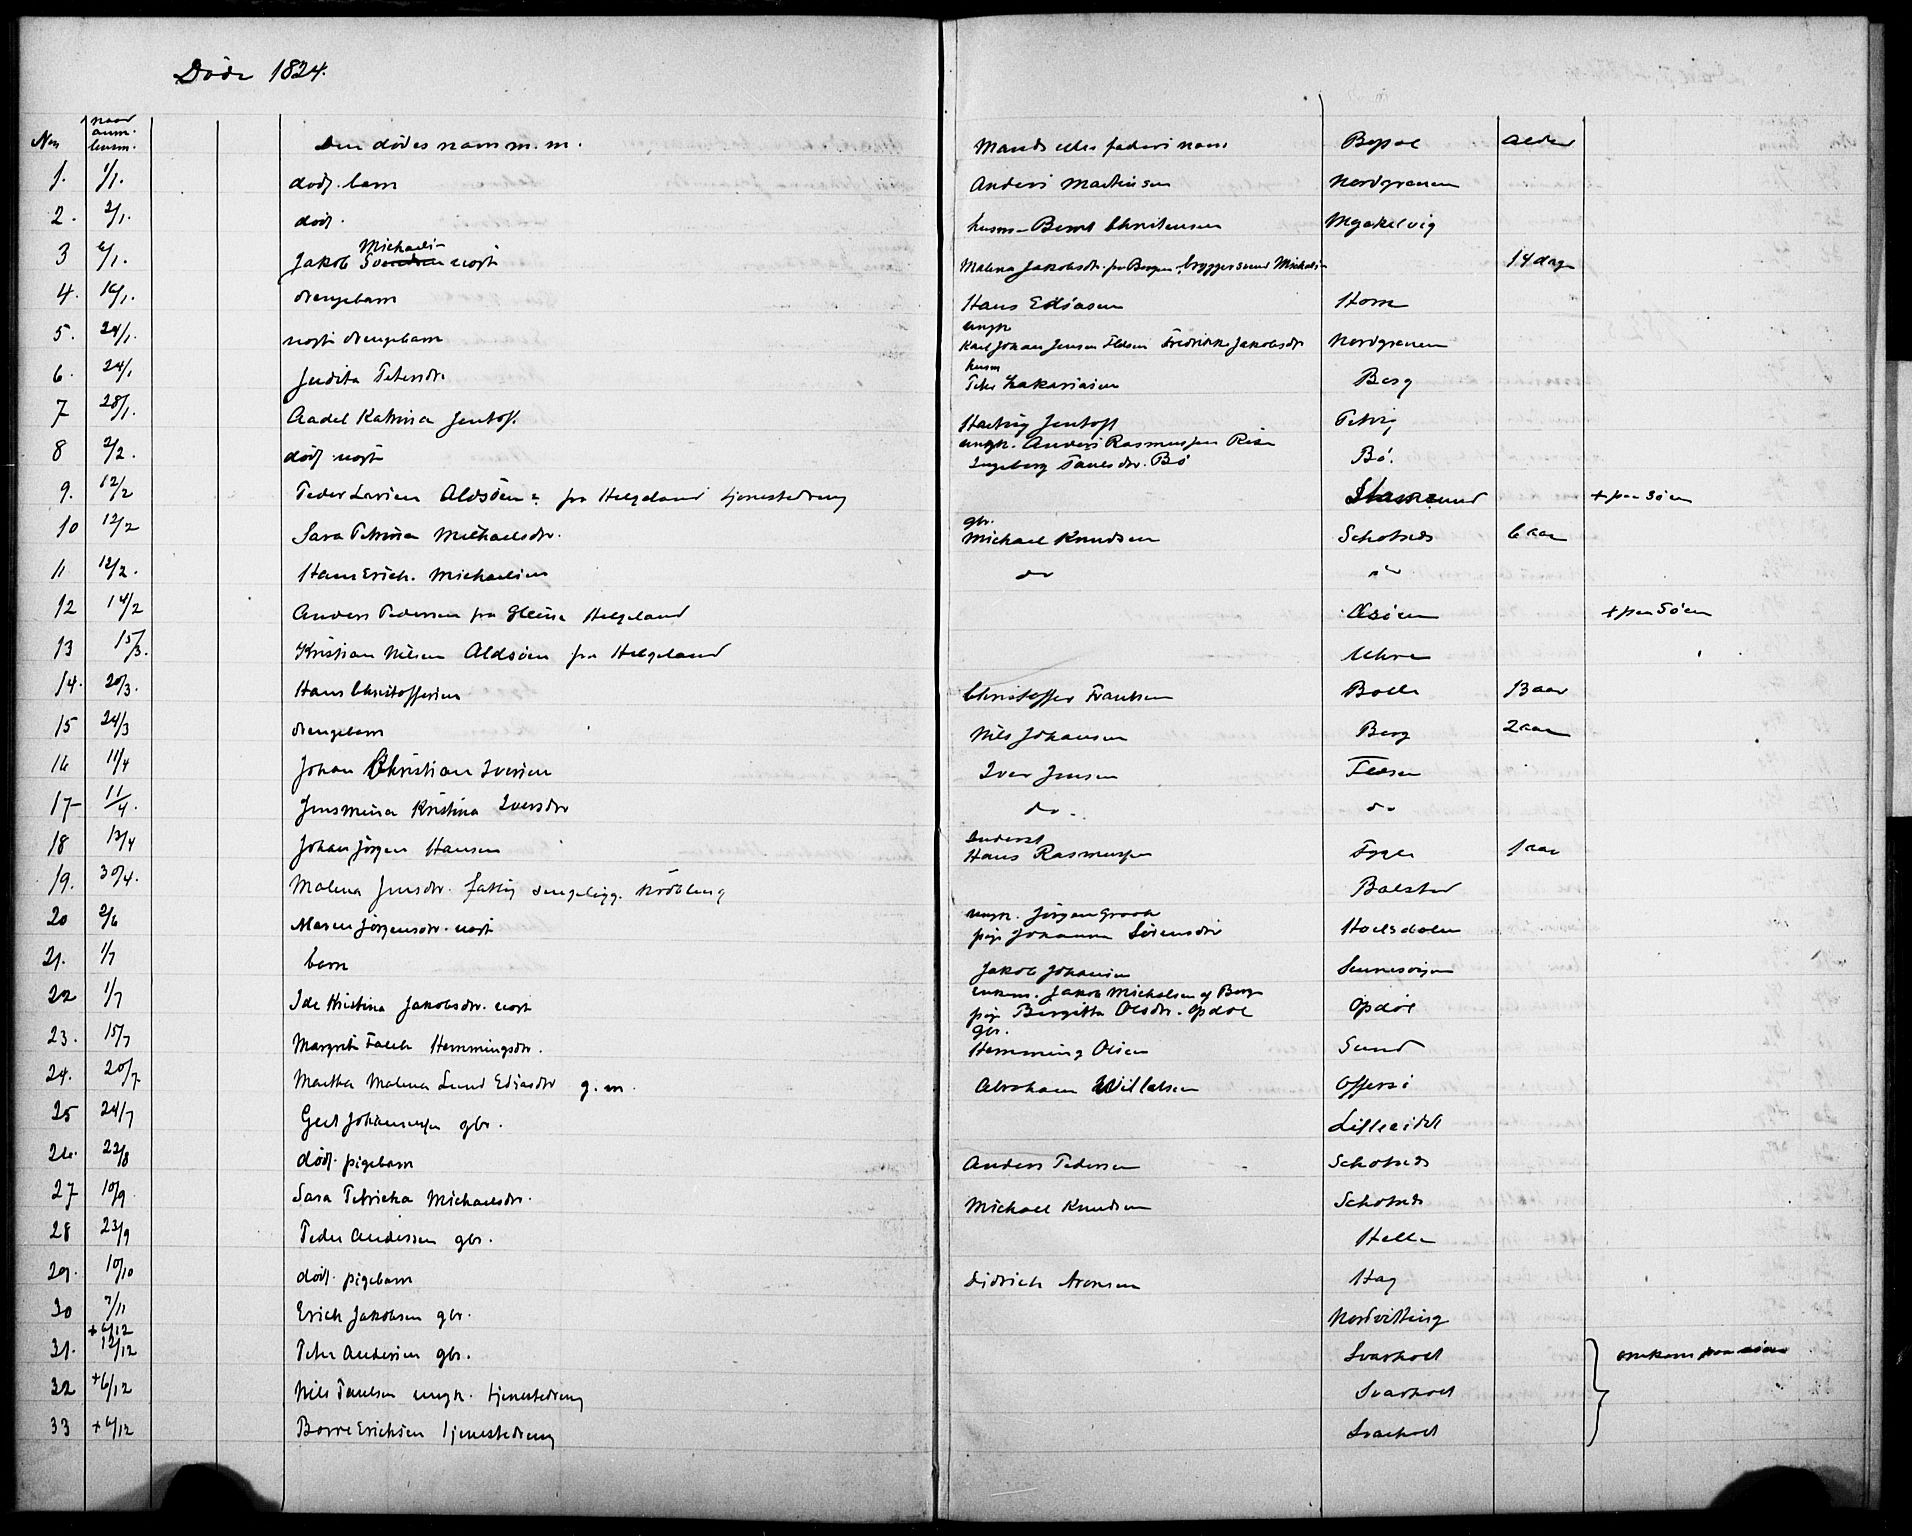 Døde 1824.
Nr. naar anm. Den dødes navn m. m. Mands eller faders navn Bopæl Alder
1. 1/1. dødf. barn Anders Martinsen Nordgrenen
2. 2/1. dødf. husm. Bernt Christensen Myrkelvig
3 6/1. Jakob Michaels uegt Malena Jakobsdr. fra Bergen 14 dage
4. 16/1. drengebarn Hans Ediasen Horn
5. 24/1. uegte drengebarn ungk. Karl Johan Jensen Fredrikke Jakobsdr Nordgrenen
6. 24/1 Judita Petersdr. husm Peter Zakariasen Berg
7 28/1. Aadel Katrina Jentof. Hartvig Jentoft Petvig
8 2/2. dødf. uegte ungk. Anders Rasmussen Risø Ingeborg Paulsdr. Bø Bø.
9. 12/2 Peder Larsen Aldsøen fra Helgeland tjenestedreng + paa søen
10 12/2 Sara Petrina Michaelsdr. gbr. Michael Knudsen Schotnes 6 aar
11 12/2. Hans Erich. Michaelsen do do
12 14/2 Anders Pedersen fra Helgeland + paa Søen
13 15/3. Kristian Nilsen Aldsøen fra Helgeland Uhre
14. 20/3. Hans Christoffersen Christoffer Frantsen Bolle 13 aar
15 24/3 drengebarn Nils Johansen Berg 2 aar
16 11/4 Johan Christian Iversen Iver Jensen Flesen
17 11/4. Jensmina Kristina Iversdr do. do
18 13/4 Johan Jørgen Hansen Hans Rasmussen Fygle 1 aar
19. 30/4. Malena Jensdr. fattig sengeligg. Balstad
20 2/6 Maren Jørgensdr. uegt ungk. Jørgen Grook pige Johanna Sørensdr Holsdalen
21. 1/7 barn Jakob Johansen Sennesvigen
22 1/7 Ide Kristina Jakobsdr. uegt enkem. Jakob Michelsen af Berg pige Bergitta Olsdr. Opdøl Opdøl
23. 15/7 Margrete Falch Hemmingsdr. gbr. Hemming Olsen Sund
24. 20/7 Martha Malena Lund Ediasdr g. m. Abraham Willatsen Offersø
25 24/7 Gert Johannessen gbr. Lilleeidet
26. 22/8 dødf. pigebarn Anders Pedersen Schotnes
27 10/9 Sara Petricka Michaelsdr. Michael Knudsen Schotnes
28 23/9 Peder Andersen gbr. Helle
29. 10/10 dødf. pigebarn Didrich Aronsen Hag
30 7/11 Erich Jakobsen gbr. Nordvitting
31. +6/12 12/12 Peter Andersen gbr. Svarholt omkom paa søen
32 +6/12 Nils Paulsen ungk. tjenestedreng Svarholt
33 +6/12 Borre Erichsen tjenestedreng Svarholt